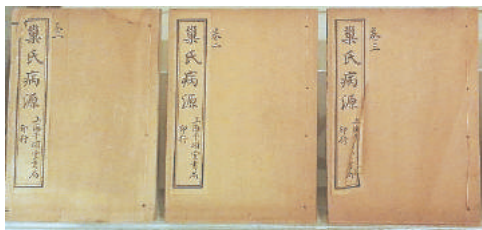 卷一
巢氏病源
上海千頃堂書局
印行
卷二
巢氏病源
上海千頃堂書局
印行
卷三
巢氏病源
上海
書局
印行